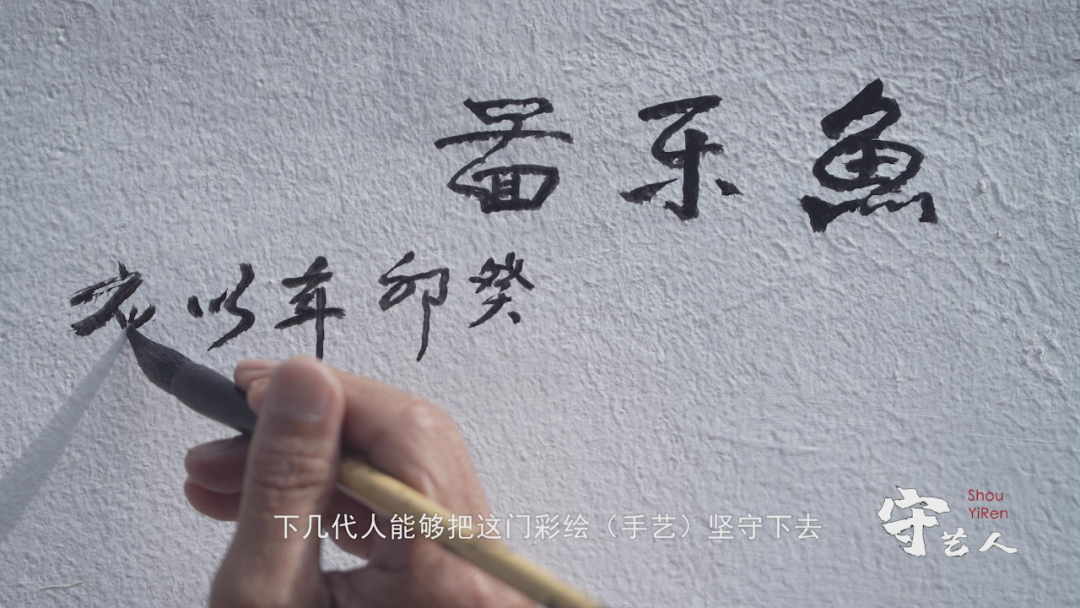 魚乐啚
癸卯年以
下几代人能够把这门彩绘（手艺）坚守下去
守艺人
Shou
YiRen